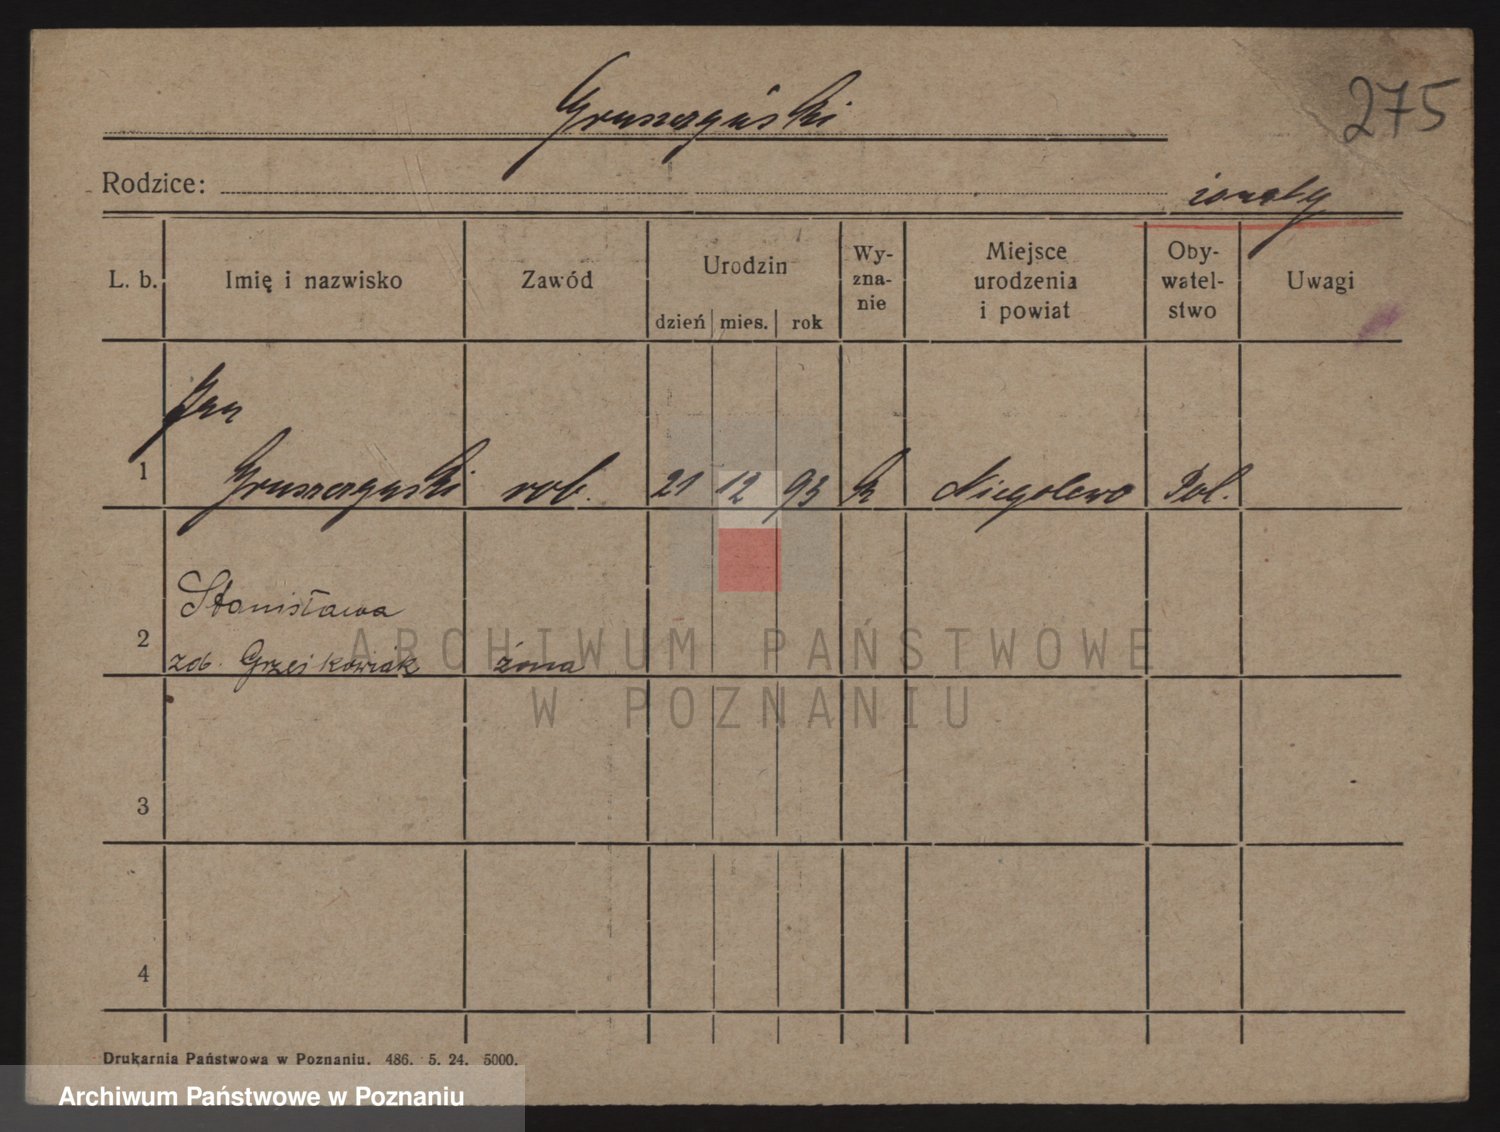 275
Gruszczyński
Rodzice:
żonaty
L. b.
Imię i nazwisko
Zawód
Urodzin
dzień mies. rok
Wy-
zna-
nie
Miejsce
urodzenia
i powiat
Oby-
watel-
stwo
Uwagi
Jan
1 Gruszczyński rob. 21 12 93 k Niegolewo Pol.
Stanisława
2 zd. Grześkowiak żona
3
4
ARCHIWUM PAŃSTWOWE
W POZNANIU
Drukarnia Państwowa w Poznaniu. 486. 5. 24. 5000.
Archiwum Państwowe w Poznaniu